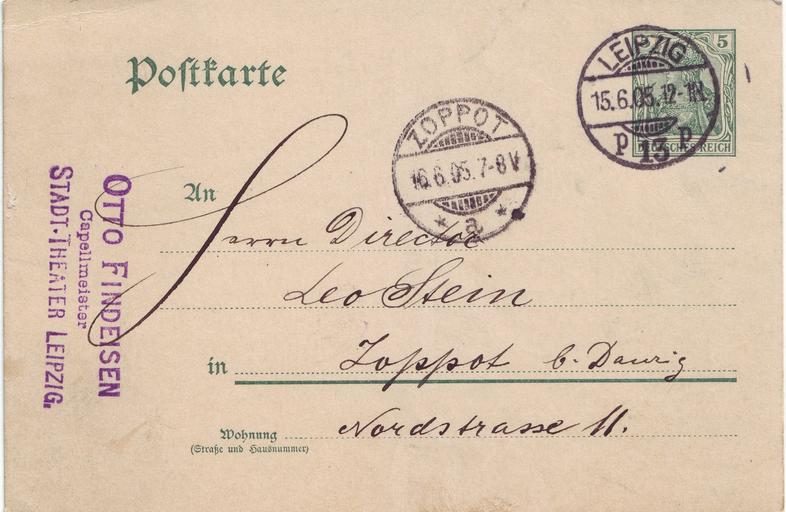 Postkarte
5
DEUTSCHES REICH
LEIPZIG
15.6.05.12-1N.
p 13 p
ZOPPOT
16.6.05.7-8V
* a *
An
Herrn Director
Leo Stein
in Zoppot b. Danzig
Wohnung Nordstrasse 11.
(Straße und Hausnummer)
OTTO FINDEISEN
Capellmeister
STADT-THEATER LEIPZIG.